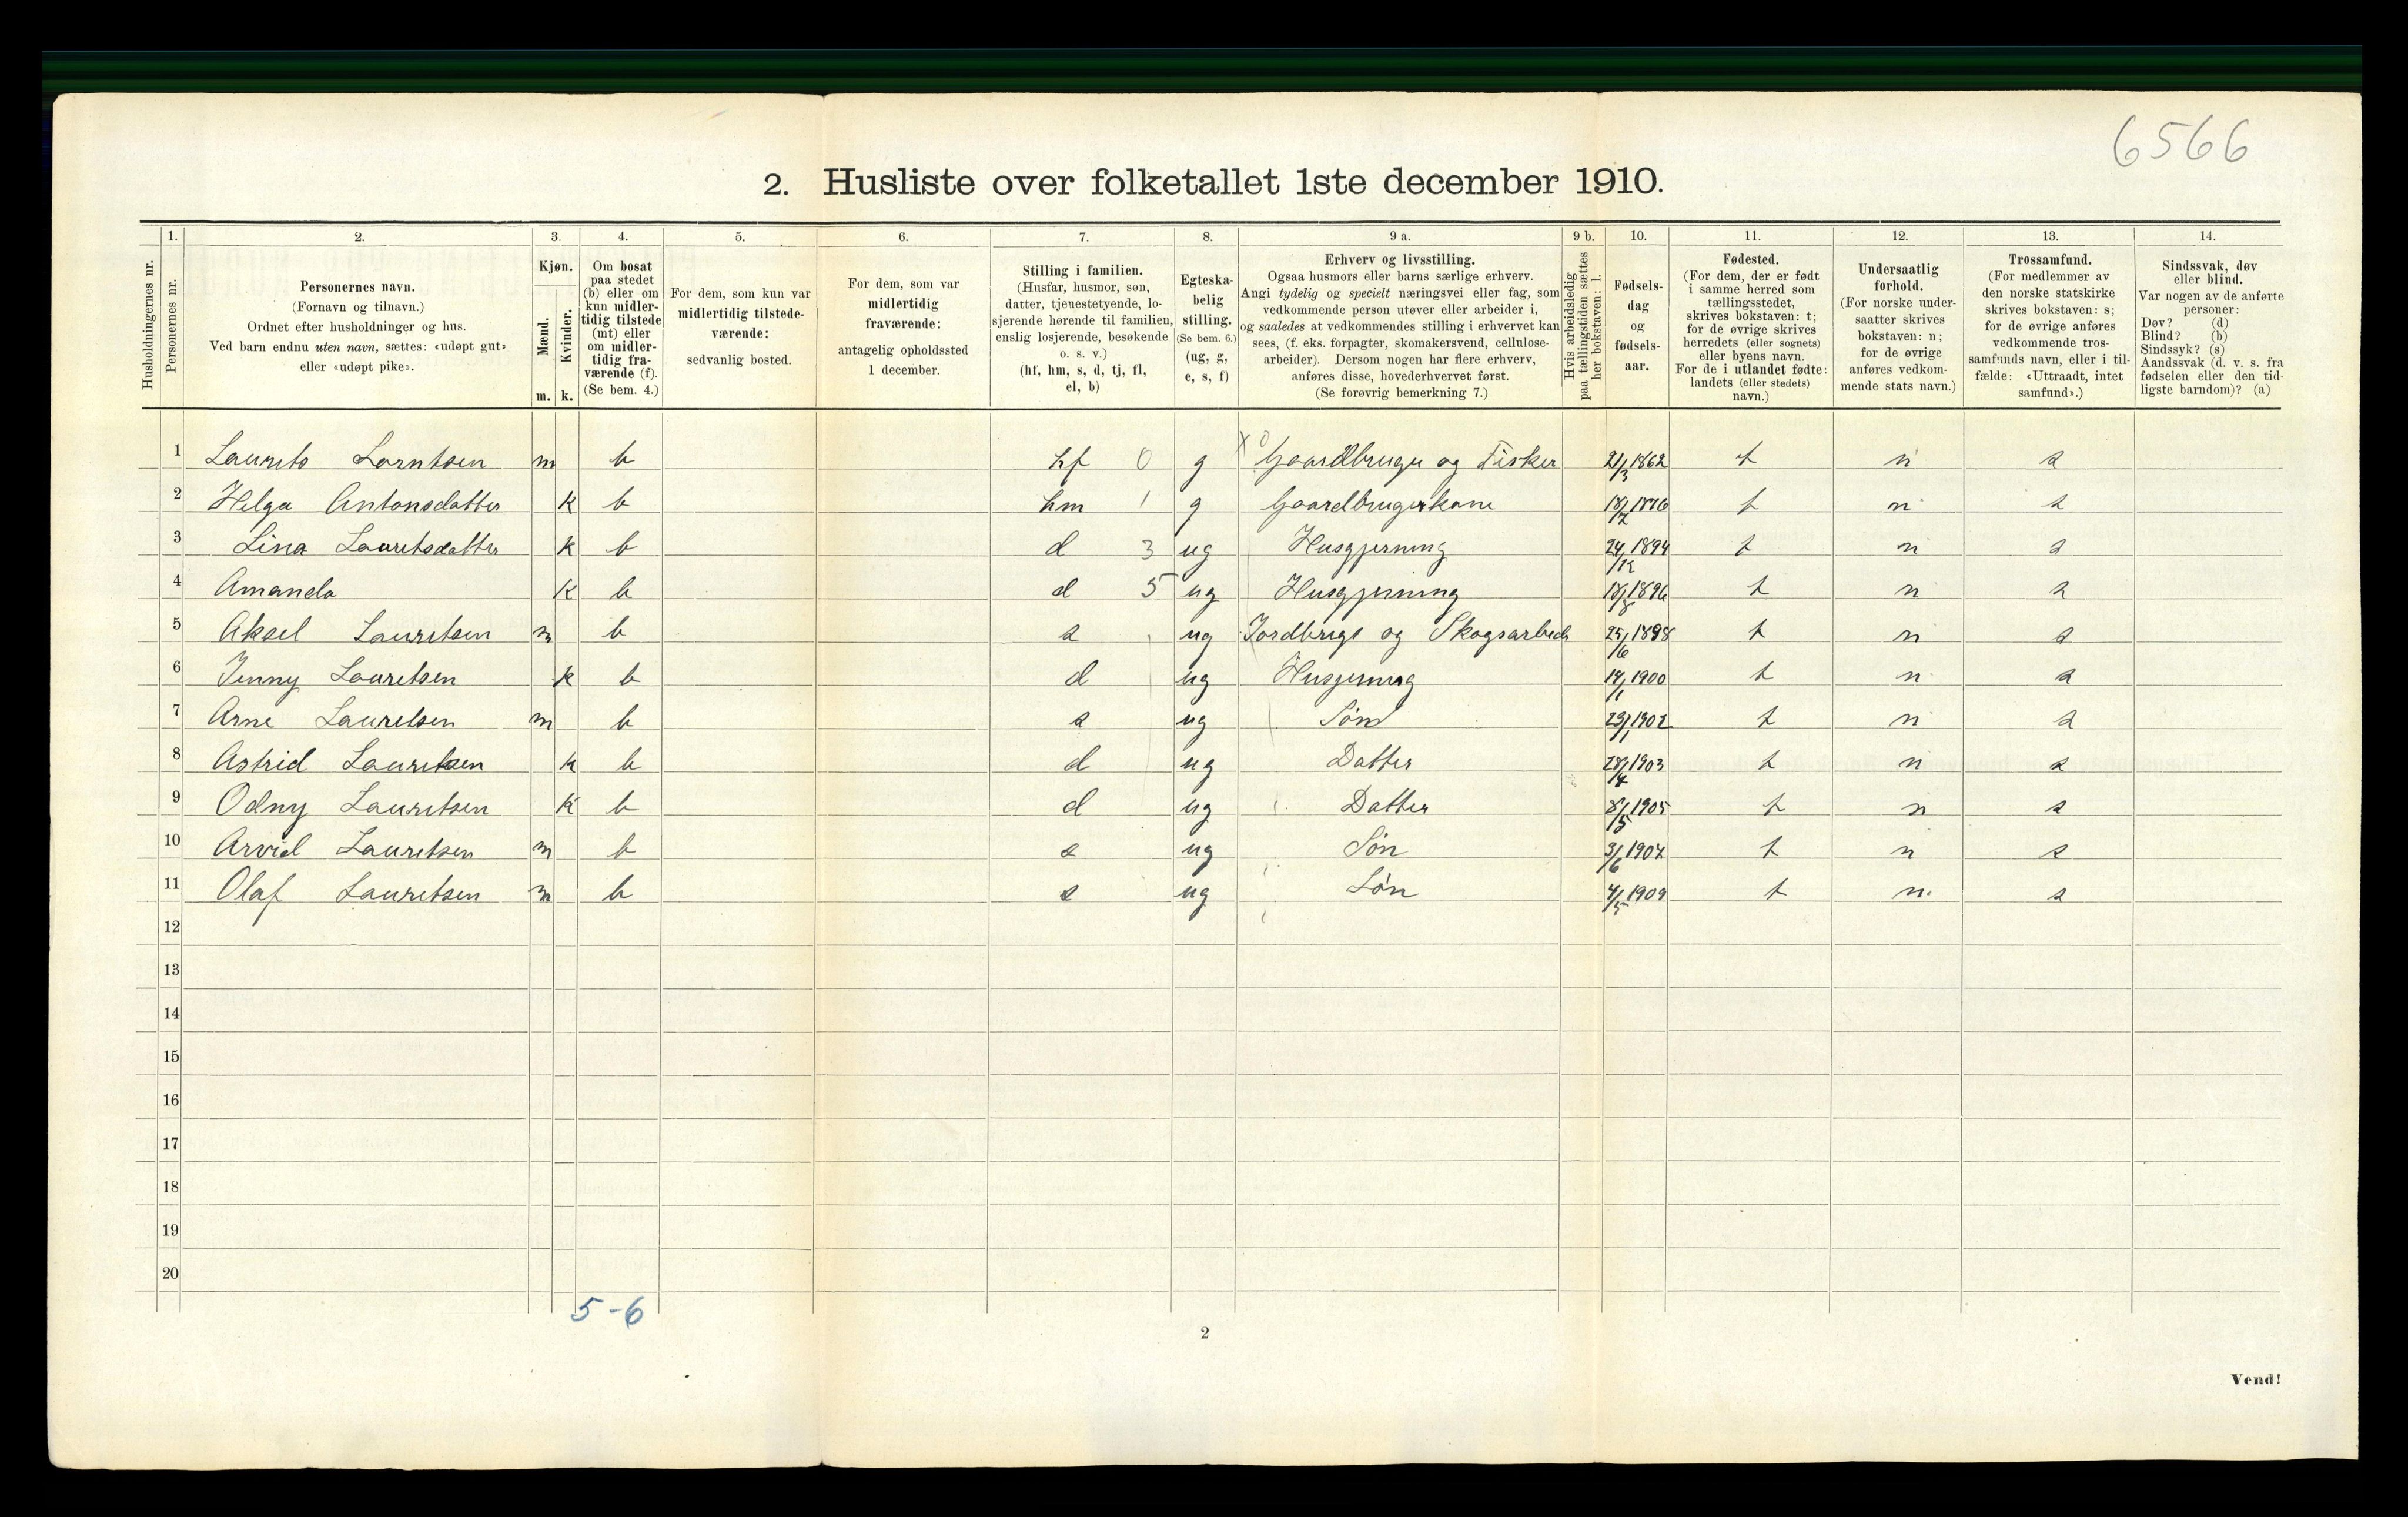 6566
2. Husliste over folketallet 1ste december 1910.
Husholdningernes nr.
1. Personernes nr.
2. Personernes navn.
(Fornavn og tilnavn.)
Ordnet efter husholdninger og hus.
Ved barn endnu uten navn, sættes: «udøpt gut»
eller «udøpt pike».
3. Kjøn.
Mænd. Kvinder.
m. k.
4. Om bosat
paa stedet
(b) eller om
kun midler-
tidig tilstede
(mt) eller
om midler-
tidig fra-
værende (f).
(Se bem. 4.)
5. For dem, som kun var
midlertidig tilstede-
værende:
sedvanlig bosted.
6. For dem, som var
midlertidig
fraværende:
antagelig opholdssted
1 december.
7. Stilling i familien.
(Husfar, husmor, søn,
datter, tjenestetyende, lo-
sjerende hørende til familien,
enslig losjerende, besøkende
o. s. v.)
(hf, hm, s, d, tj, fl,
el, b)
8. Egteska-
belig
stilling.
(Se bem. 6.)
(ug, g,
e, s, f)
9 a. Erhverv og livsstilling.
Ogsaa husmors eller barns særlige erhverv.
Angi tydelig og specielt næringsvei eller fag, som
vedkommende person utøver eller arbeider i,
og saaledes at vedkommendes stilling i erhvervet kan
sees, (f. eks. forpagter, skomakersvend, cellulose-
arbeider). Dersom nogen har flere erhverv,
anføres disse, hovederhvervet først.
(Se forøvrig bemerkning 7.)
9 b. Hvis arbeidsledig
paa tællingstiden sættes
her bokstaven: l.
10. Fødsels-
dag
og
fødsels-
aar.
11. Fødested.
(For dem, der er født
i samme herred som
tællingsstedet,
skrives bokstaven: t;
for de øvrige skrives
herredets (eller sognets)
eller byens navn.
For de i utlandet fødte:
landets (eller stedets)
navn.)
12. Undersaatlig
forhold.
(For norske under-
saatter skrives
bokstaven: n;
for de øvrige
anføres vedkom-
mende stats navn.)
13. Trossamfund.
(For medlemmer av
den norske statskirke
skrives bokstaven: s;
for de øvrige anføres
vedkommende tros-
samfunds navn, eller i til-
fælde: «Uttraadt, intet
samfund».)
14. Sindssvak, døv
eller blind.
Var nogen av de anførte
personer:
Døv? (d)
Blind? (b)
Sindssyk? (s)
Aandssvak (d. v. s. fra
fødselen eller den tid-
ligste barndom)? (a)
1 Laurits Lorntsen m b hf 0 g X0 Gaardbruger og Fisker 21/3 1862 t n s
2 Helga Antonsdatter k b hm 1 g Gaardbrugerkone t n s
3 Lina Lauritsdatter k b d 3 ug Husgjerning 24/12 1894 t n s
4 Amanda k b d 5 ug Husgjerning 18/8 1896 t n s
5 Aksel Lauritsen m b s ug Jordbrugs og Skogsarbeid 25/6 1898 t n s
6 Jenny Lauretsen k b d ug Husjerning 14/1 1900 t n s
7 Arne Lauretsen m b s ug Søn 29/1 1902 t n s
8 Astrid Lauretsen k b d ug Datter 28/4 1903 t n s
9 Odny Lauretsen k b d ug Datter 8/5 1905 t n s
10 Arvid Lauretsen m b s ug Søn 3/6 1907 t n s
11 Olaf Lauretsen m b s ug Søn 4/5 1909 t n s
12
13
14
15
16
17
18
19
20
5-6
2
Vend!